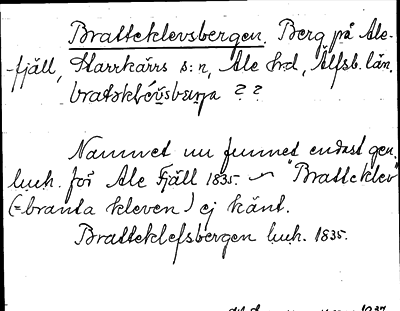 Bratteklevsbergen. Berg på Ale-
fjäll, Starrkärrs s:n, Ale hrd, Älfsb. län.
? ?
Namnet nu funnet endast gen.
luch. för Ale Fjäll 1835. ~ "Bratteklev"
(=branta kleven) ej känt.
Bratteklefsbergen luch. 1835.